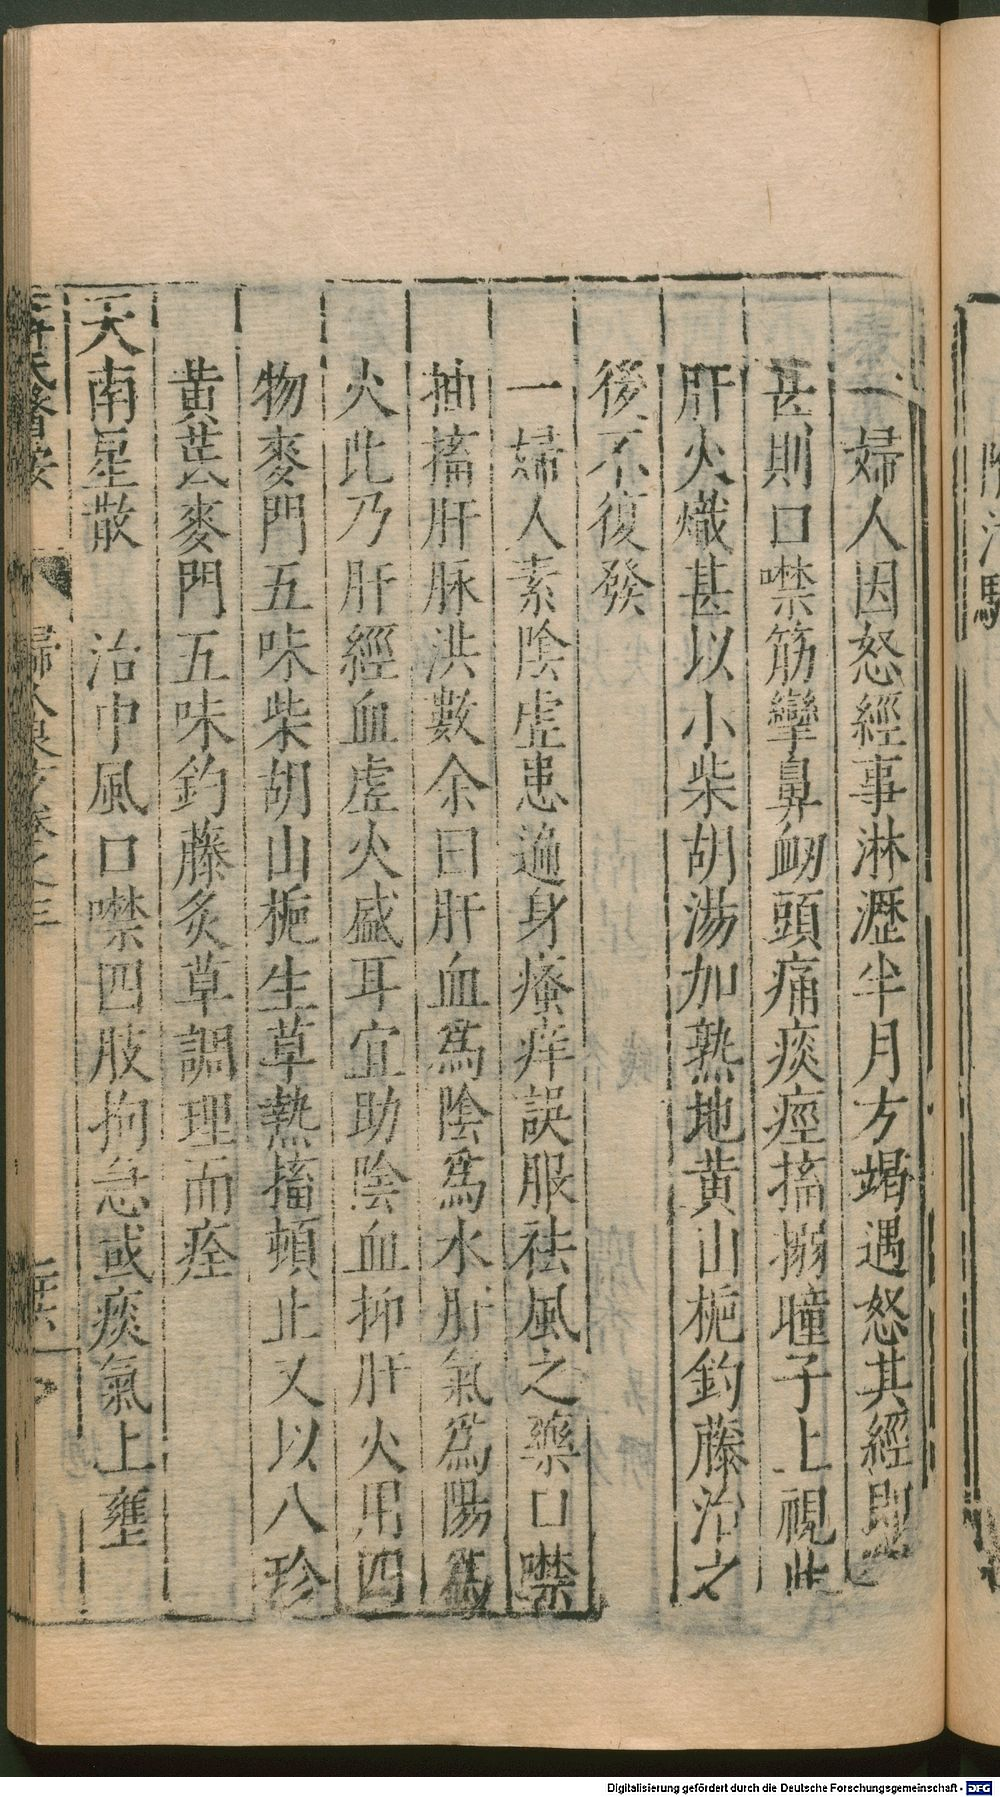 一婦人因怒經事淋瀝半月方竭遇怒其經即
甚則口噤筋攣鼻衂頭痛痰痙搐搦瞳子上視此
肝火熾甚以小柴胡湯加熟地黄山梔釣藤治之
後不復發
一婦人素陰虛患遍身瘙痒誤服祛風之藥口噤
抽搐肝脉洪數余曰肝血爲陰爲水肝氣爲陽爲
火此乃肝經血虛火盛耳宜助陰血抑肝火用四
物麥門五味柴胡山梔生草熱搐頓止又以八珍
黄芪麥門五味釣藤炙草調理而痊
天南星散 治中風口噤四肢拘急或痰氣上壅
薛氏醫按 婦人良方卷之三
Digitalisierung gefördert durch die Deutsche Forschungsgemeinschaft - DFG